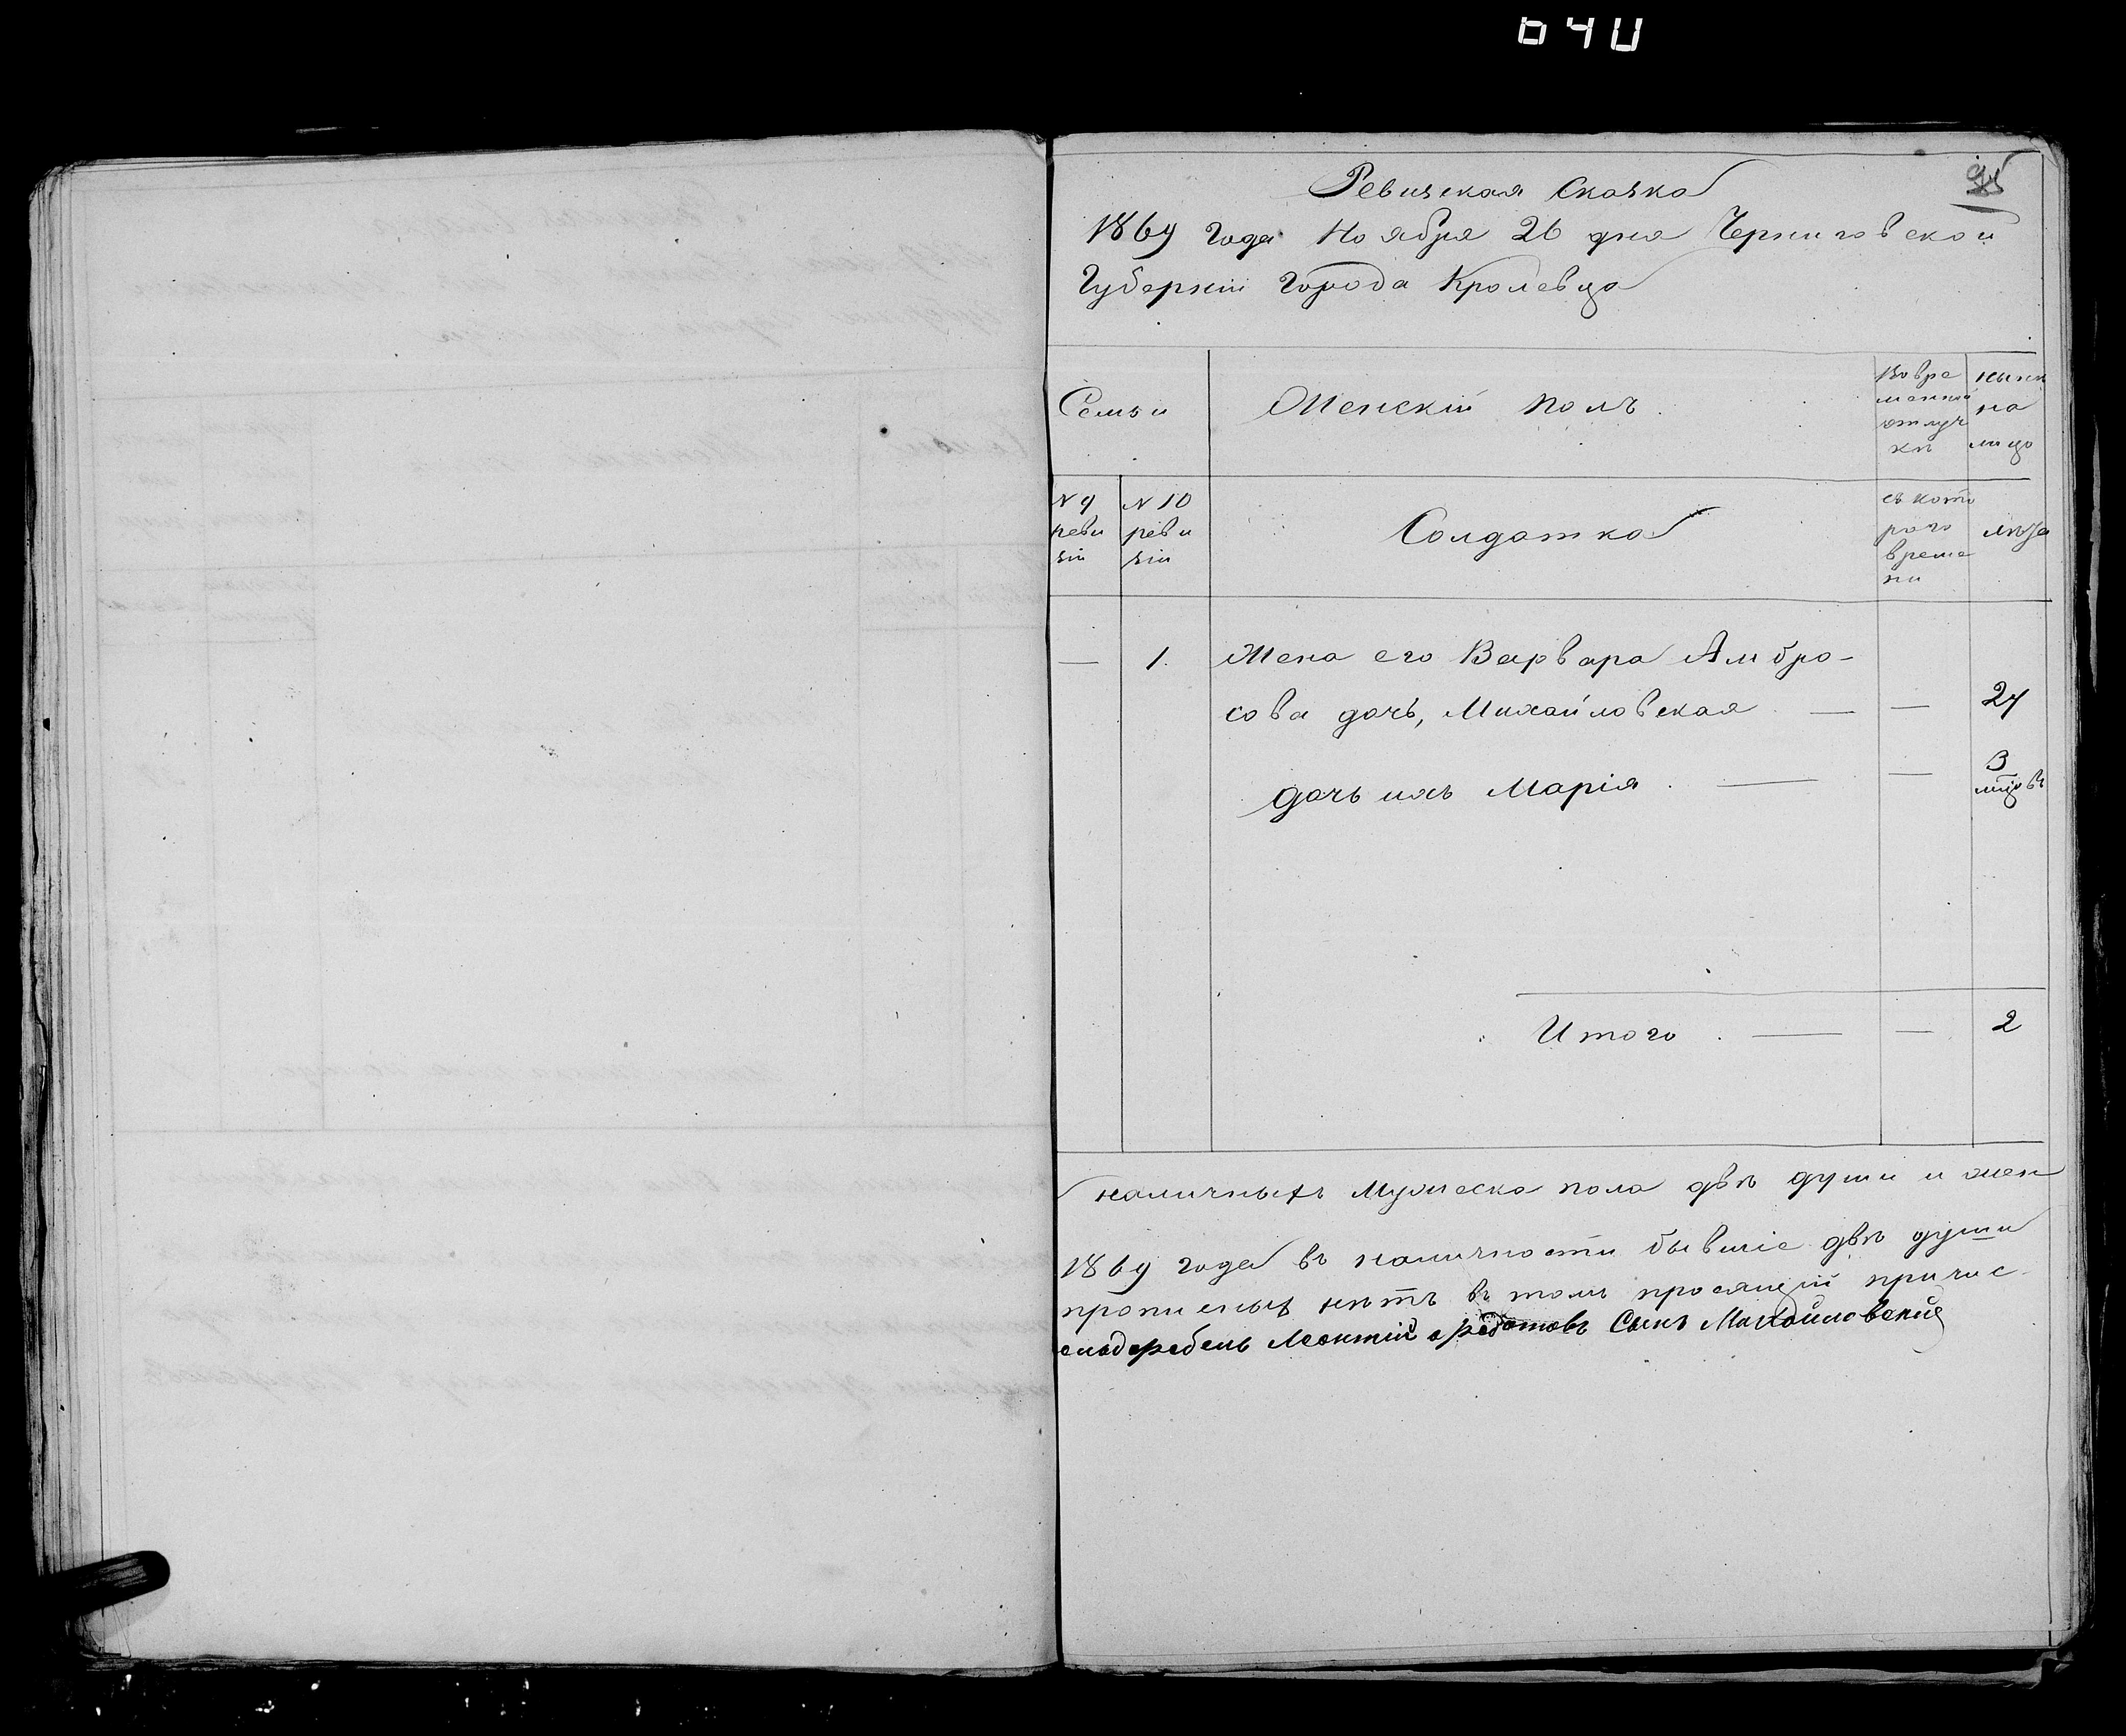 640
95
Ревизская Сказка
1869 года Ноября 26 дня Черниговской
Губерніи Города Кролевца
Семьи
Женскій полъ.
Во вре
менной
отлуч
кѣ
нынѣ
на
лицо
N 9
реви
зіи
N 10
реви
зіи
Солдатка
съ кото
раго
време
ни
лѣта
— 1. Жена его Варвара Амбро-
сова дочь, Михайловская — — 27
дочь ихъ Марія. — — 3
мцовъ
Итого. — — 2
наличныхъ Мужеска пола двѣ души и жен
1869 года въ наличности бывшіе двѣ души
прописныхъ нѣтъ въ томъ просящій причис
Леонтій Сынъ Михайловскій